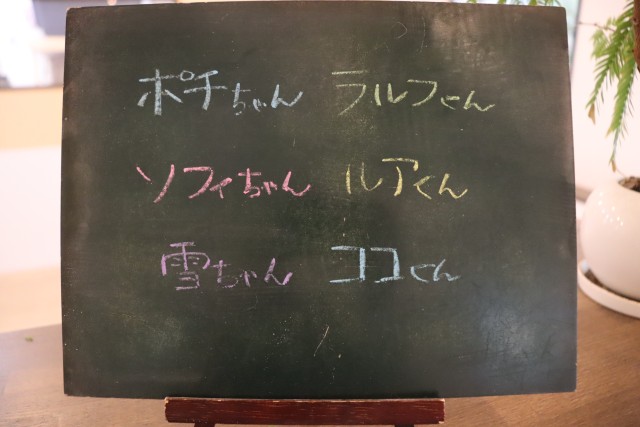 ポチちゃん ラルフくん
ソフィちゃん ルアくん
雪ちゃん ココくん